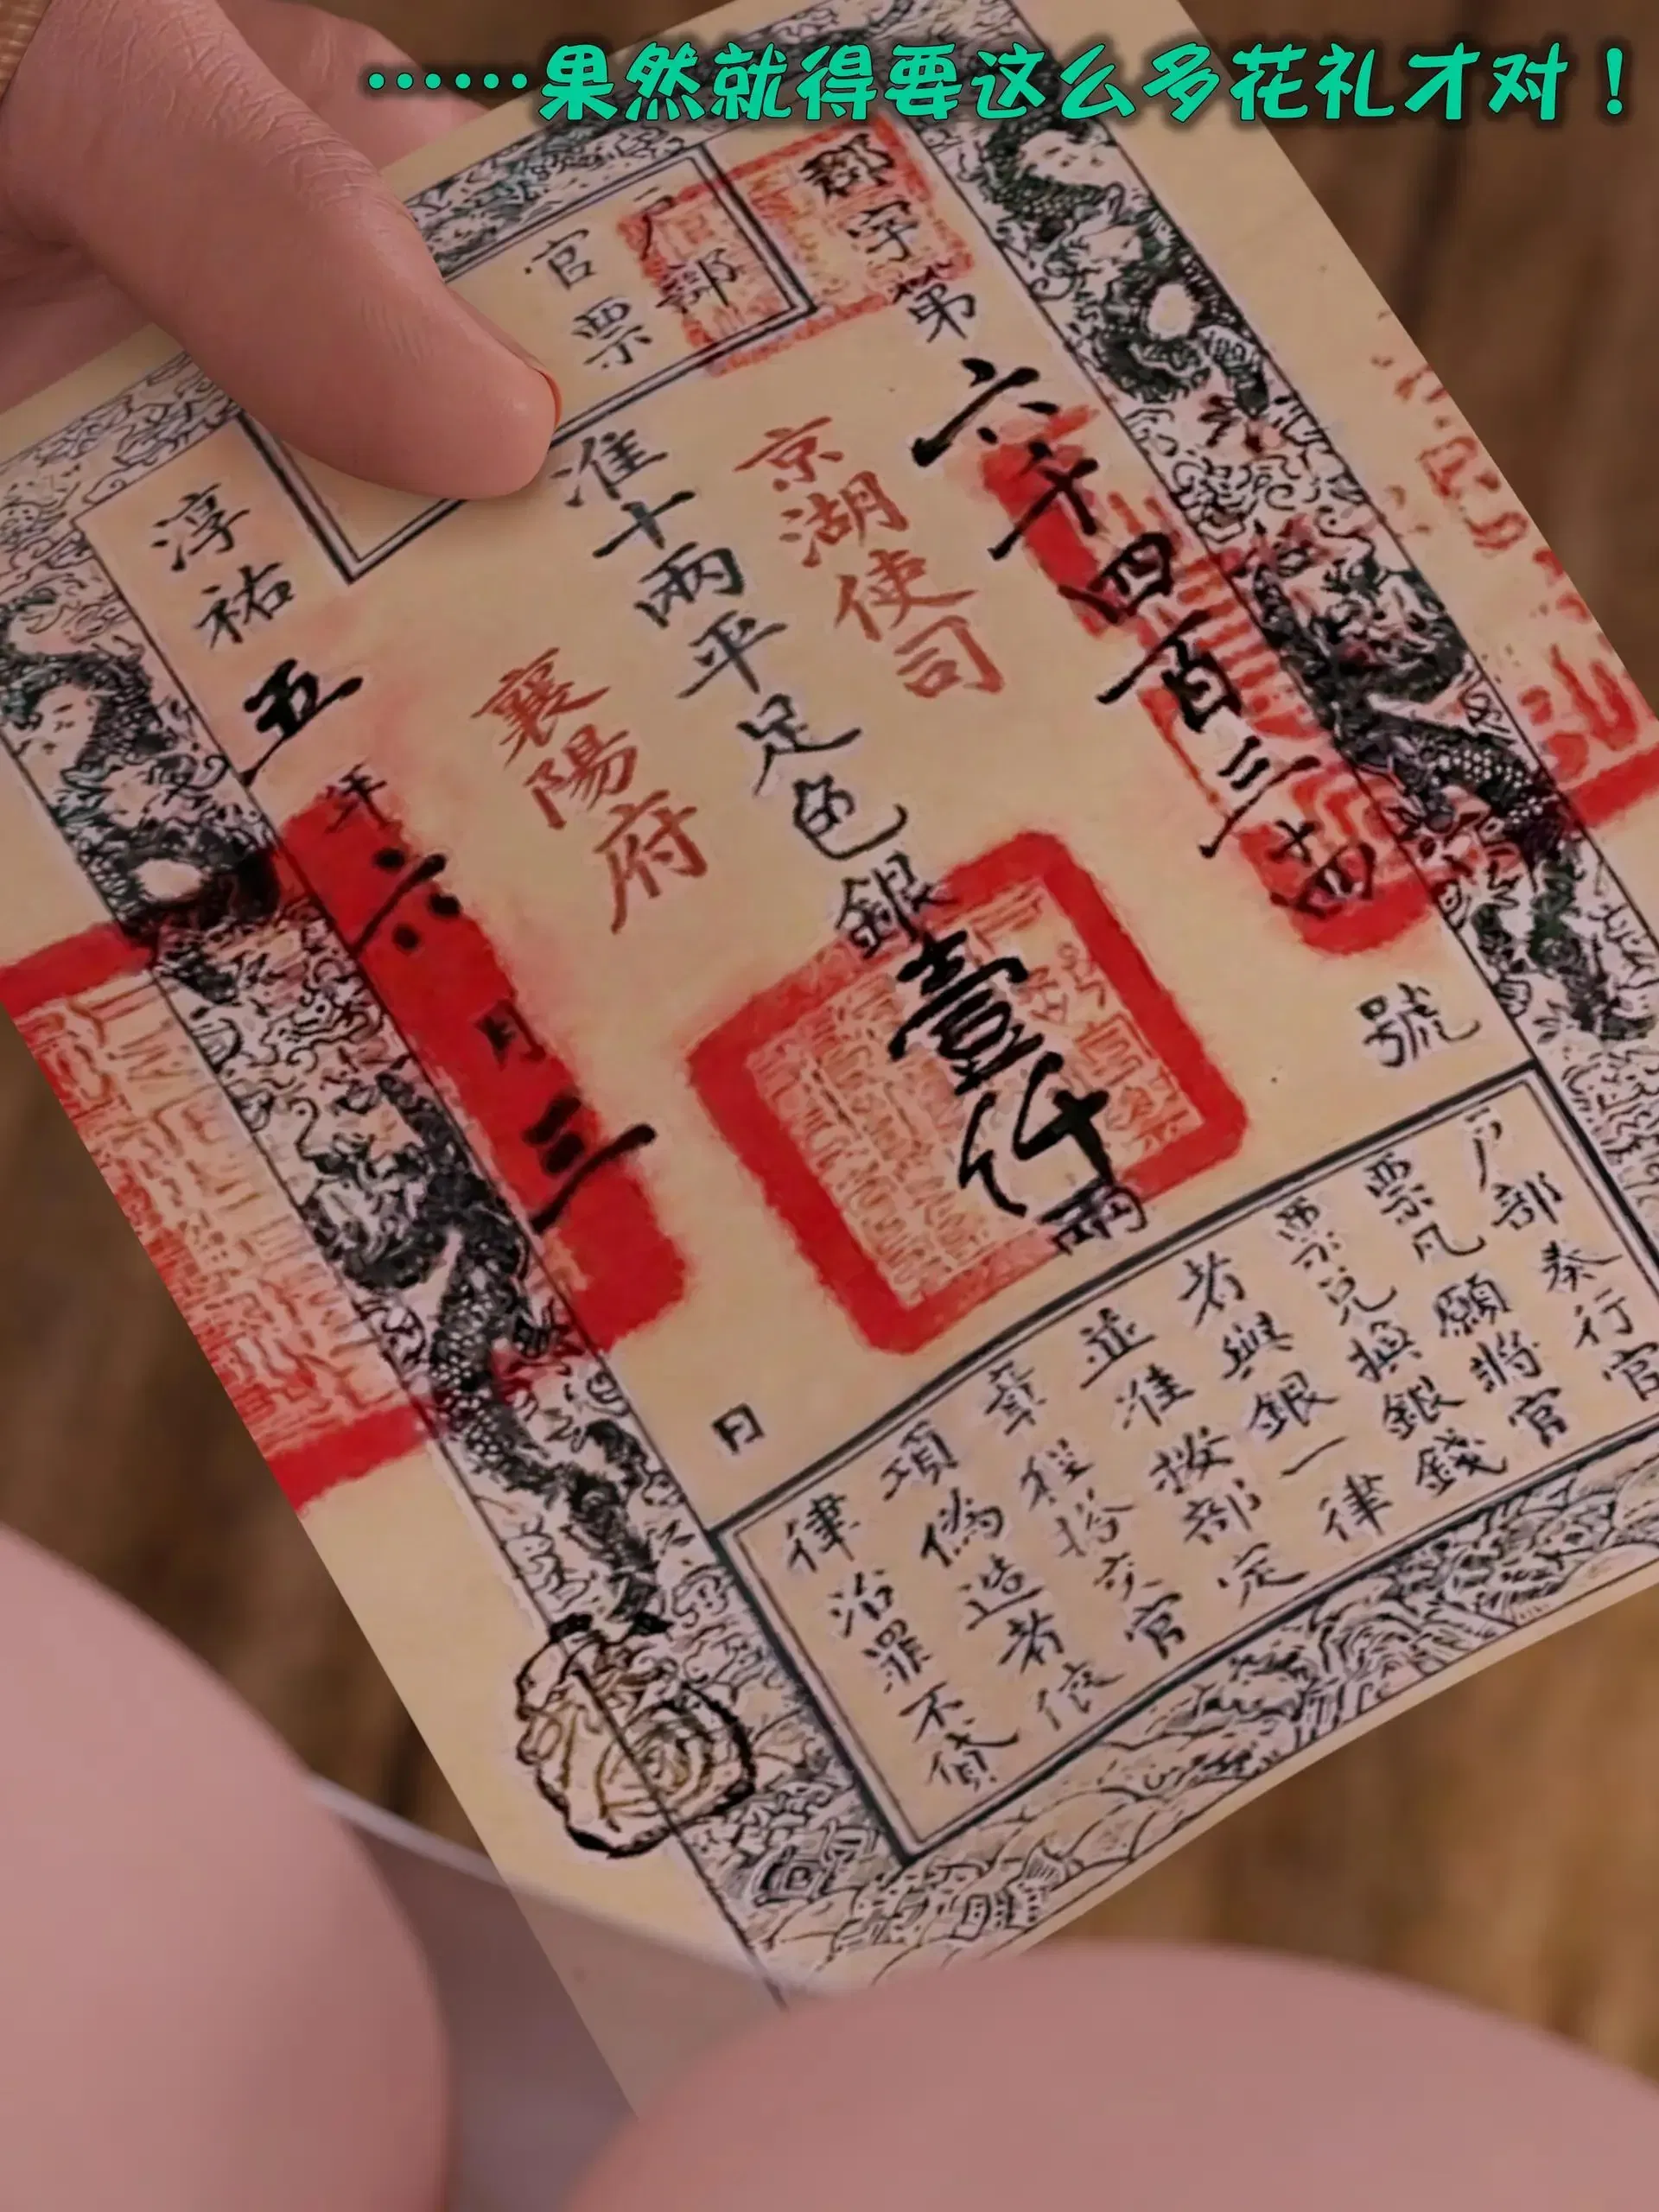 ……果然就得要这么多花礼才对！
戶部
官票
郡字第六千四百三十四號
京湖使司
准十兩平足色銀壹仟兩
襄陽府
淳祐五年六月三日
戶部奏行官
票凡願將官
票兌換銀錢
者與銀一律
並准按部定
章程搭交官
項偽造者依
律治罪不貸